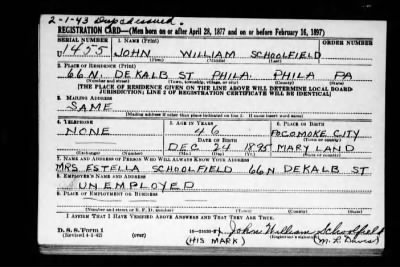 2-1-43 Dup card issued.
REGISTRATION CARD—(Men born on or after April 28, 1877 and on or before February 16, 1897)
SERIAL NUMBER 1. NAME (Print) ORDER NUMBER
U 1455 JOHN WILLIAM SCHOOLFIELD
(First) (Middle) (Last)
2. PLACE OF RESIDENCE (Print)
66 N. DEKALB ST PHILA. PHILA PA
(Number and street) (Town, township, village, or city) (County) (State)
[THE PLACE OF RESIDENCE GIVEN ON THE LINE ABOVE WILL DETERMINE LOCAL BOARD
JURISDICTION; LINE 2 OF REGISTRATION CERTIFICATE WILL BE IDENTICAL]
3. MAILING ADDRESS
SAME
[Mailing address if other than place indicated on line 2. If same insert word same]
4. TELEPHONE 5. AGE IN YEARS 6. PLACE OF BIRTH
NONE 46 POCOMOKE CITY
DATE OF BIRTH (Town or county)
DEC 24 1895 MARYLAND
(Exchange) (Number) (Mo.) (Day) (Yr.) (State or country)
7. NAME AND ADDRESS OF PERSON WHO WILL ALWAYS KNOW YOUR ADDRESS
MRS. ESTELLA SCHOOLFIELD 66 N DEKALB ST
8. EMPLOYER'S NAME AND ADDRESS
UNEMPLOYED
9. PLACE OF EMPLOYMENT OR BUSINESS
(Number and street or R. F. D. number) (Town) (County) (State)
I AFFIRM THAT I HAVE VERIFIED ABOVE ANSWERS AND THAT THEY ARE TRUE.
D. S. S. Form 1
(Revised 4-1-42) (over) John William Schoolfield
(HIS MARK) (Registrant's signature) (M. L. Davis)